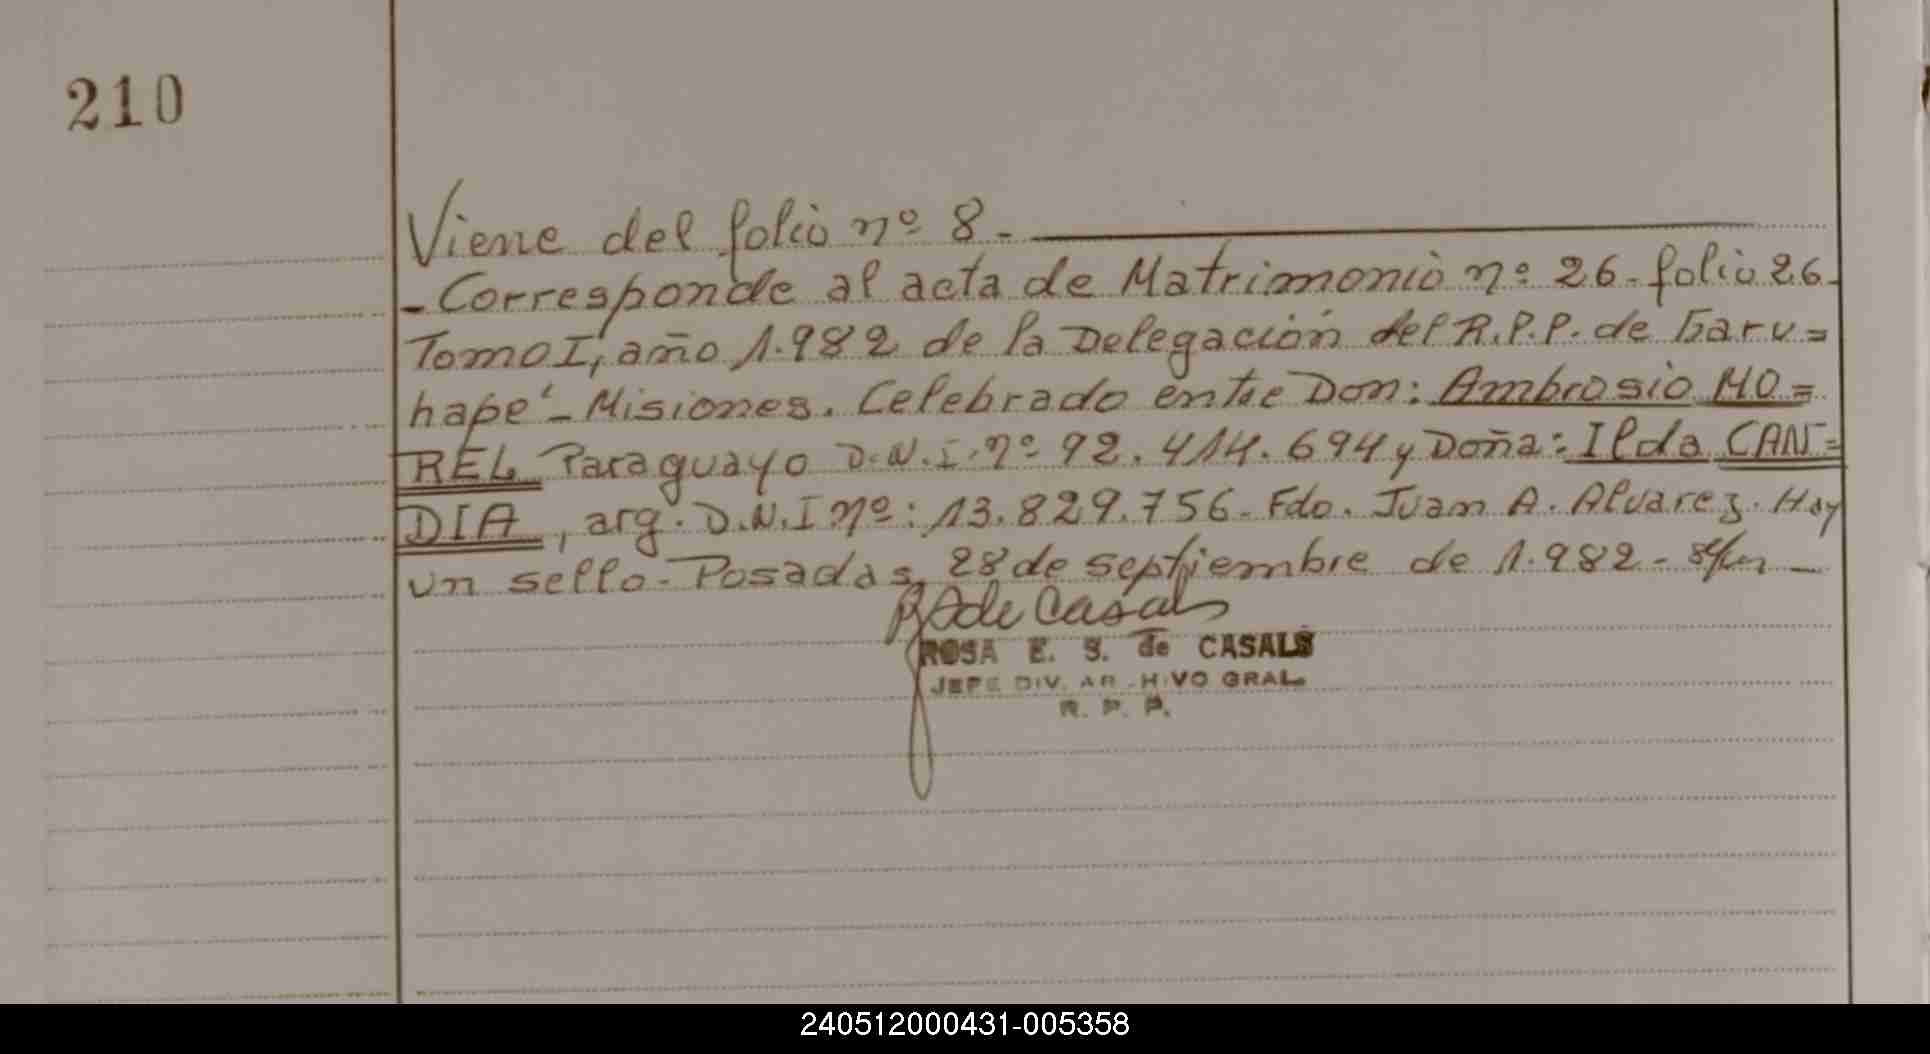 210
Viene del folio nº 8.-
- Corresponde al acta de Matrimonio nº 26. folio 26-
Tomo I, año 1.982 de la Delegación del R.P.P. de Garu=
hapé - Misiones. Celebrado entre Don: Ambrosio MO=
REL Paraguayo D.N.I. nº 92.414.694 y Doña: Ilda CAN=
DIA, arg. D.N.I nº: 13.829.756- Fdo. Juan A. Alvarez. Hay
un sello. Posadas, 28 de septiembre de 1.982-
de Casals
ROSA E. S. de CASALS
JEFE DIV. ARCHIVO GRAL.
R. P. P.
240512000431-005358